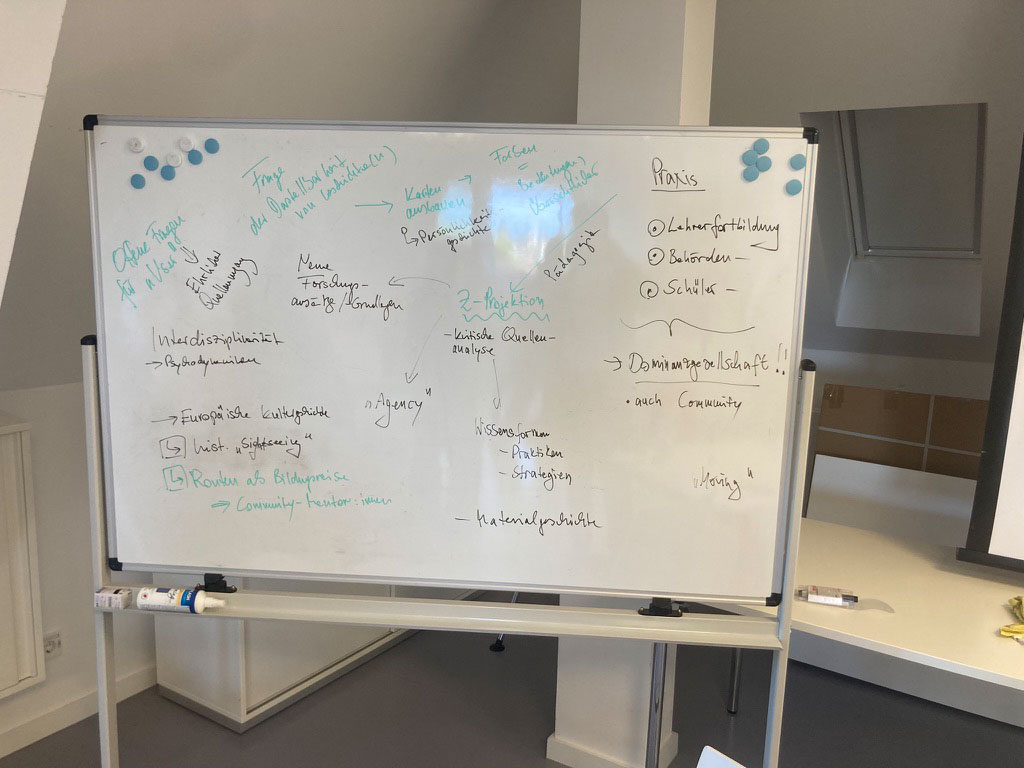 Offene Fragen
für
→ Ehrliche
Frage
der Darstellbarkeit
von Geschichte(n)
→ Karten
ausbauen
↳ Persönlichkeit
→ Farben
=
Bedeutungen
Pädagogik
Neue
Forschungs-
ansätze / -Grundlagen
Z-Projektion
- kritische Quellen-
analyse
Interdisziplinarität
→ Psychodynamiken
„Agency"
→ Europäische Kulturgeschichte
↳ hist. „Sightseeing"
↳ Routen als Bildungsreise
⇒ Community-Mentor:innen
Wissensformen
- Praktiken
- Strategien
- Materialgeschichte
Praxis
Lehrerfortbildung
Behörden -
Schüler -
→ Dominanzgesellschaft!!
• auch Community